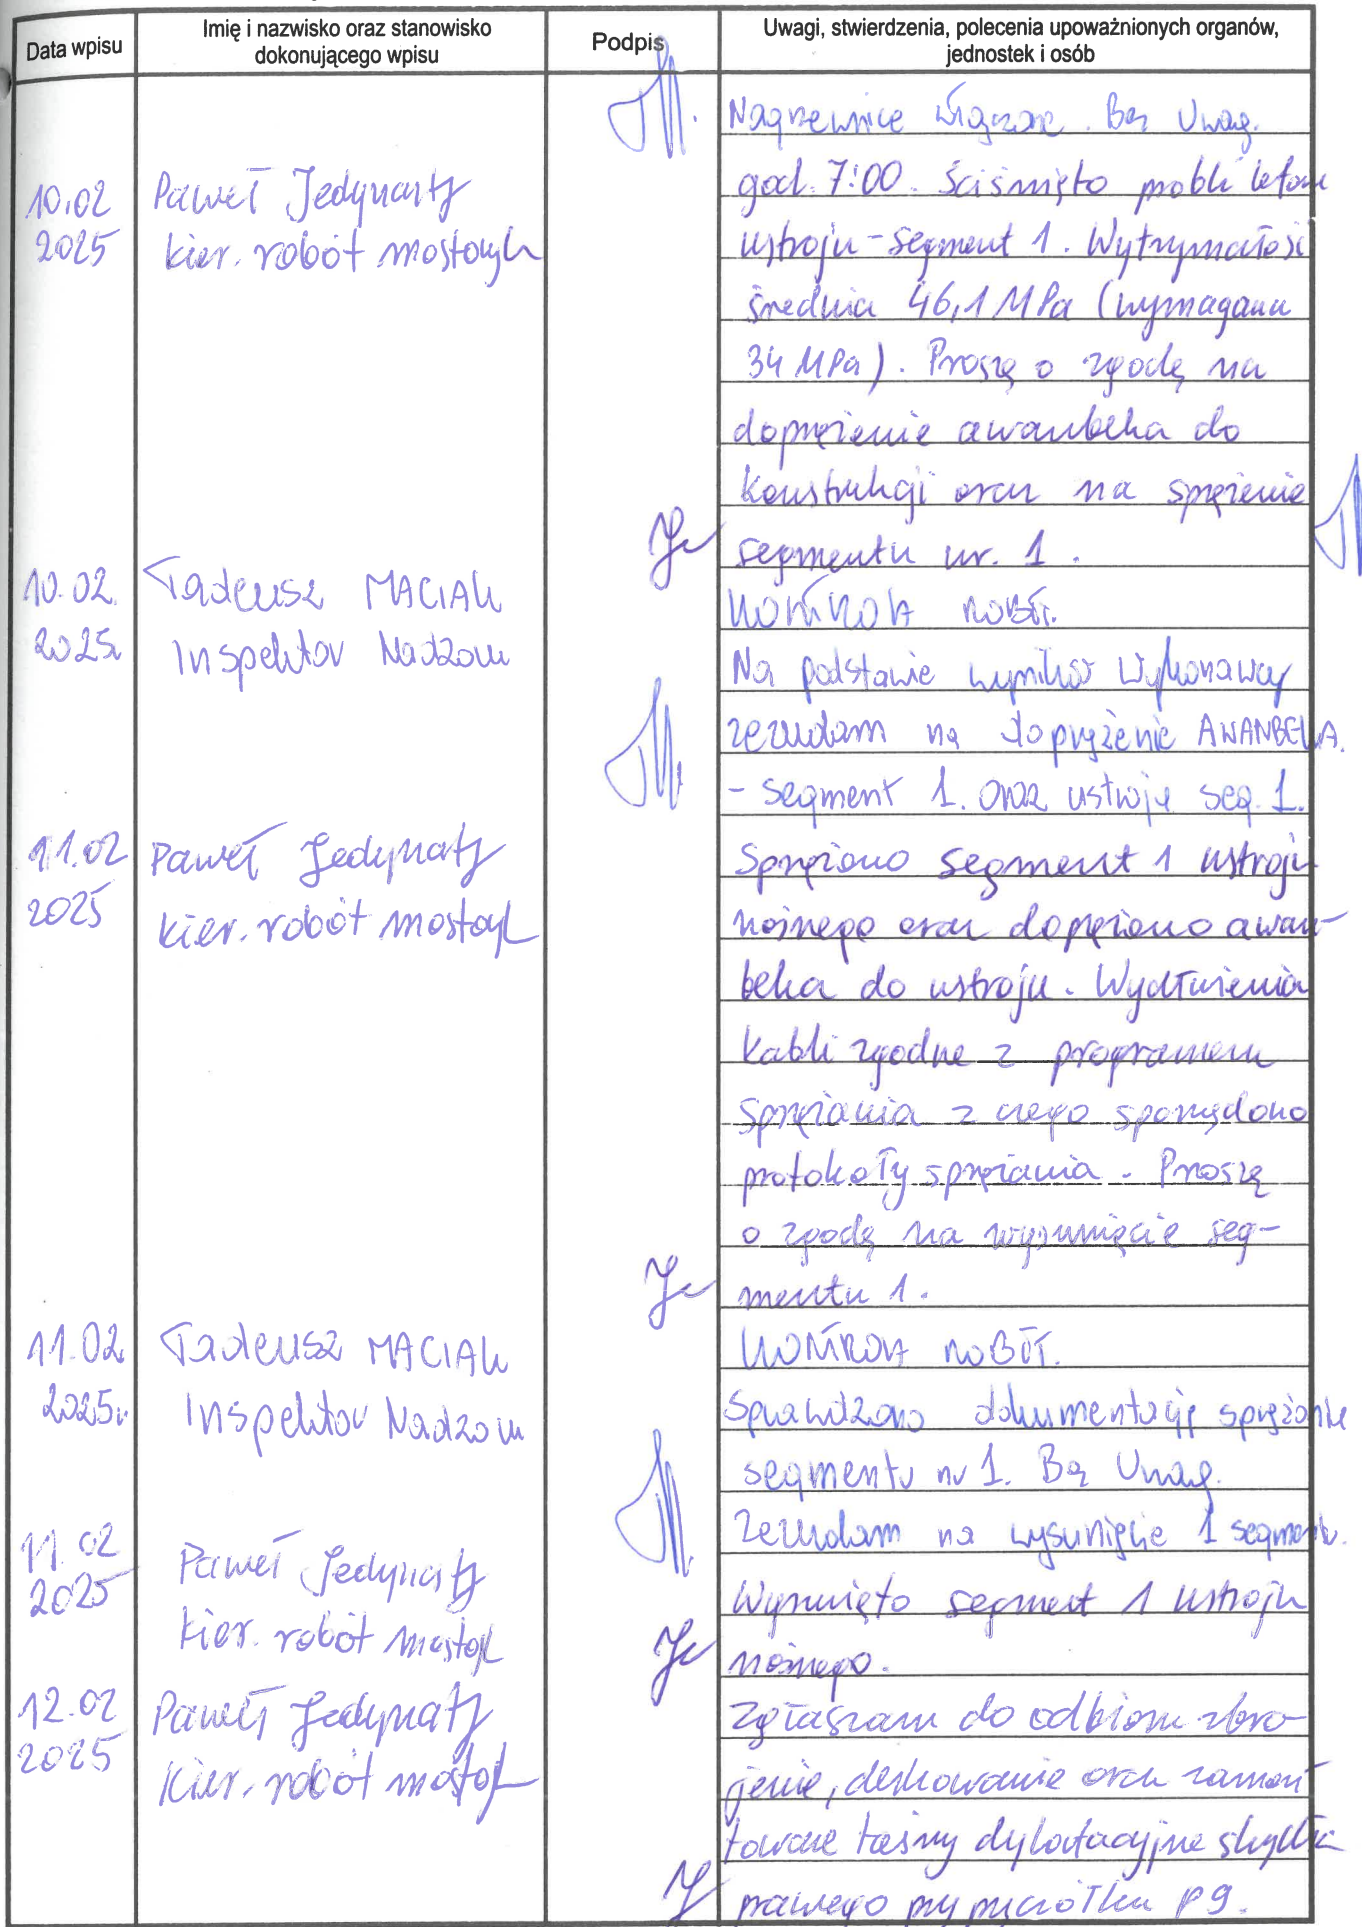 Data wpisu
Imię i nazwisko oraz stanowisko
dokonującego wpisu
Podpis
Uwagi, stwierdzenia, polecenia upoważnionych organów,
jednostek i osób
Nagrzewnice włączone. Bez Uwag.
10.02
2025
Paweł Jedynasty
kier. robót mostowych
god. 7:00. Ściśnięto próbki betonu
ustroju - segment 1. Wytrzymałość
średnia 46,1 MPa (wymagana
34 MPa). Proszę o zgodę na
doprężenie awanbeka do
konstrukcji oraz na sprężenie
segmentu nr. 1.
10.02.
2025r
Tadeusz MACIAK
Inspektor Nadzoru
KONTROLA ROBÓT.
Na podstawie wyników Wykonawcy
zezwalam na doprężenie AWANBEKA.
- segment 1. oraz ustroju seg. 1.
11.02
2025
Paweł Jedynasty
kier. robót mostowych
Sprężono segment 1 ustroju
nośnego oraz doprężono awan-
beka do ustroju. Wydłużenia
kabli zgodne z programem
sprężania z czego sporządzono
protokoły sprężania. Proszę
o zgodę na wysunięcie seg-
mentu 1.
11.02
2025r
Tadeusz MACIAK
Inspektor Nadzoru
KONTROLA ROBÓT.
Sprawdzono dokumentację sprężenia
segmentu nr 1. Bez Uwag.
Zezwalam na wysunięcie 1 segmentu.
11.02
2025
Paweł Jedynasty
kier. robót mostowych
Wysunięto segment 1 ustroju
nośnego.
12.02
2025
Paweł Jedynasty
kier. robót mostowych
Zgłaszam do odbioru zbro-
jenie, deskowanie oraz zamon-
towane taśmy dylatacyjne skrzydła
prawego przy przyczółku P9.